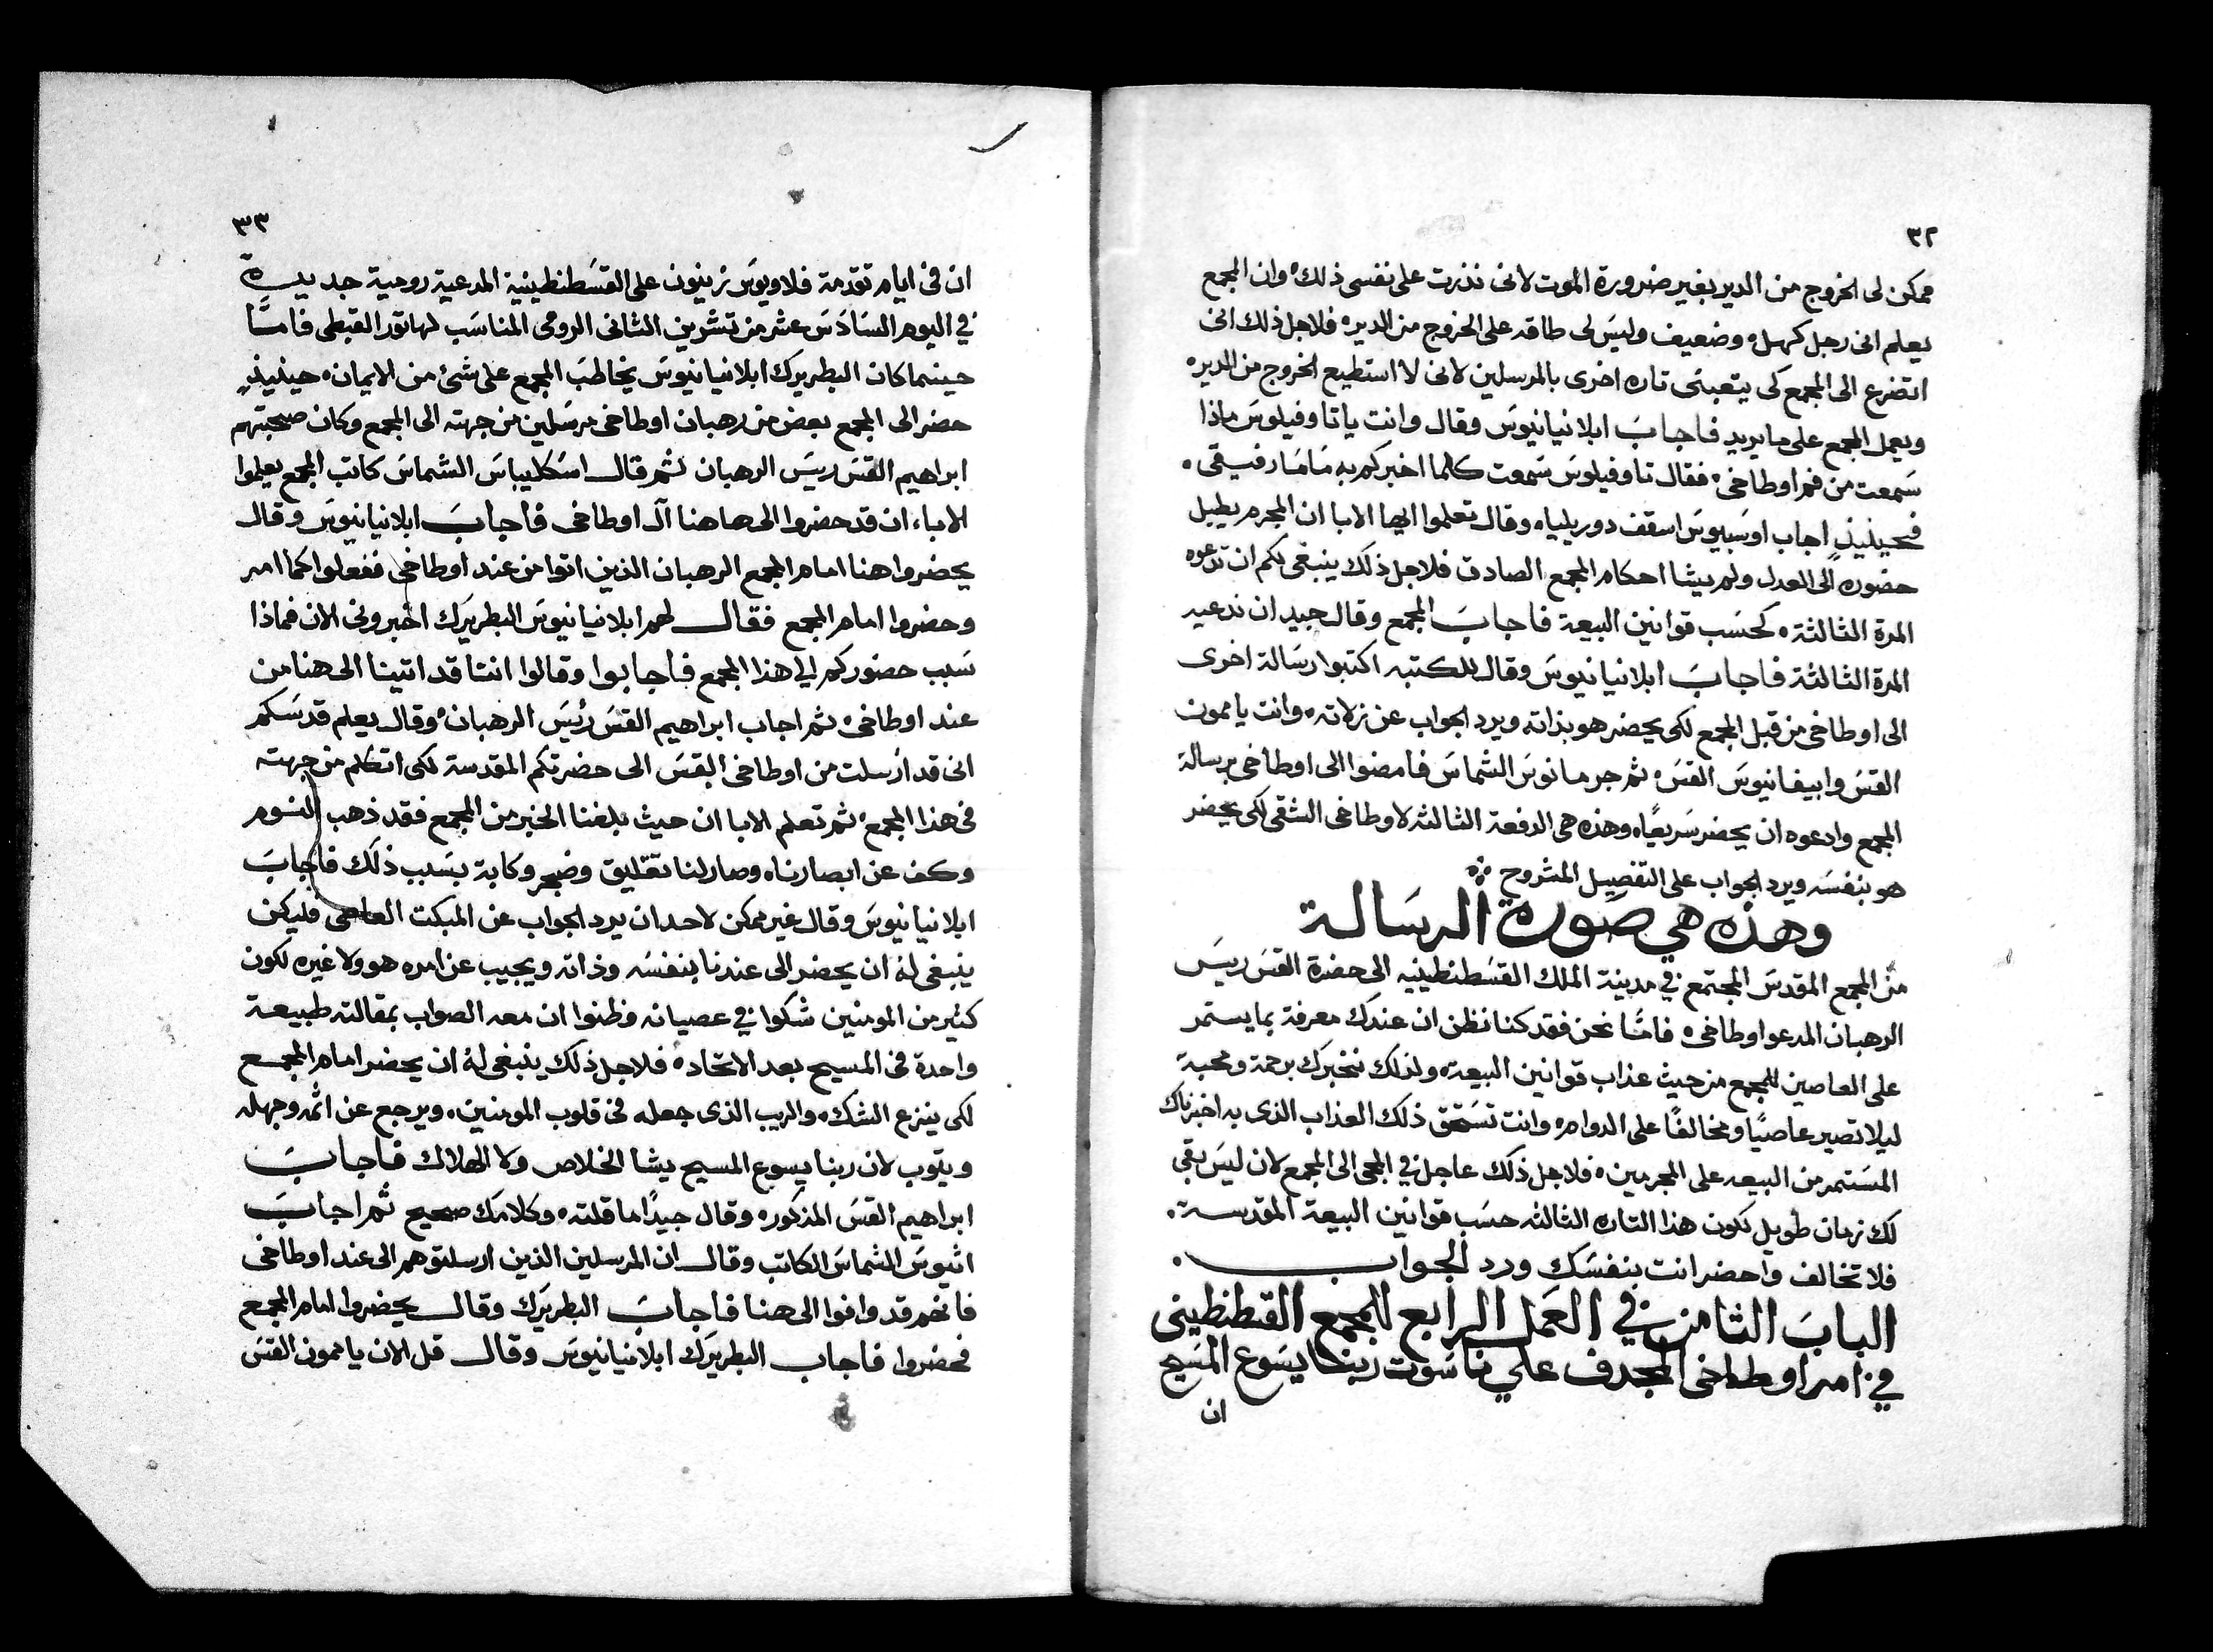 ٣٢
ممكن لى الخروج من الدير بغير ضرورة الموت لانى نذرت على نفسى ذلك ٥ وان المجمع
يعلم انى رجل كهل ٥ وضعيف وليسَ لى طاقه على الخروج من الدير ٥ فلاجل ذلك انى
اتضرع الى المجمع كى يتعبنى تاره اخرى بالمرسلين لانى لا استطيع الخروج من الدير ٥
ويعمل المجمع على ما يريد فاجابَ ابلانيانيوسَ وقال وانت يا تاوفيلوسَ ماذا
سَمعت من فم اوطاخى ٥ فقال تاوفيلوسَ سَمعت كلما اخبركم به مَامَا رفيقى ٥
فحينيذٍ اجاب اوسَبيوسَ اسقف دوريلياه وقال تعلموا ايها الابا ان المجرم يطيل
حضوره الى العدل ولم يشا احكام المجمع الصادق فلاجل ذلك ينبغى لكم ان تدعوه
المرة الثالثة ٥ كحسَب قوانين البيعة فاجابَ المجمع وقال جيد ان ندعيه
المرة الثالثة فاجابَ ابلانيانيوسَ وقال للكتبه اكتبوا رسَالة اخرى
الى اوطاخى من قبل المجمع لكى يحضر هو بذاته ويرد الجواب عن زلاته ٥ وانت يا ممون
القسَ وابيفانيوسَ القسَ ٥ ثم جرمانوسَ الشماسَ فامضوا الى اوطاخى برسالة
المجمع وادعوه ان يحضر سَريعًا ٥ وهذه هى الدفعة الثالثه لاوطاخى الشقى لكى يحضر
هو بنفسَه ويرد الجواب على التفصيل المشروح
وهذه هي صورة الرسَالة
من المجمع المقدسَ المجتمع في مدينة الملك القسَطنطينيه الى حضرة القسَ ريسَ
الرهبان المدعو اوطاخى ٥ فامَّا نحن فقد كنا نظن ان عندك معرفة بما يستمر
على العاصين للمجمع من حيث عذاب قوانين البيعة ٥ ولذلك نخبرك برحمة ومحبة
ليلا تصير عاصيًا ومخالفًا على الدوام ٥ وانت تسَتحق ذلك العذاب الذى به اخبرناك
المسَتمر من البيعه على المجرمين ٥ فلاجل ذلك عاجل في المجى الى المجمع لان ليسَ بقى
لك زمان طويل لكون هذا التاره الثالثه حسَب قوانين البيعة المقدسة ٠
فلا تخالف واحضر انت بنفسَك ورد الجواب ٠
البابَ الثامن في العمَل الرابع للمجمع القطنطينى
في امر اوطاخى المجدف علي ناسَوت ربنا يسَوع المسَيح
ان
٣٣
ان فى ايام تقدمة فلاويوسَ زينون على القسَطنطينية المدعية رومية جديدة
في اليوم السَادسَ عشر من تشرين الثانى الرومى المناسَب لهاتور القبطى فامَّا
حينما كان البطريرك ابلانيانيوسَ يخاطبَ المجمع على شئ من الايمان ٥ حينيذٍ
حضر الى المجمع بعض من رهبان اوطاخى مرسَلين من جهته الى المجمع وكان صحبتهم
ابراهيم القسَ ريسَ الرهبان ثم قال اسَكليباسَ الشماسَ كاتب المجمع يعلموا
الاباء ان قد حضروا الى هاهنا آل اوطاخى فاجابَ ابلانيانيوسَ وقال
يحضروا هنا امام المجمع الرهبان الذين اتوا من عند اوطاخى ففعلوا كما امر
وحضروا امام المجمع فقال لهم ابلانيانيوسَ البطريرَك اخبرونى الان فماذا
سَبب حضوركم الي هذا المجمع فاجابوا وقالوا اننا قد اتينا الى هنا من
عند اوطاخى ٥ ثم اجاب ابراهيم القسَ رئيسَ الرهبان ٥ وقال يعلم قدسَكم
انى قد ارسلت من اوطاخى القسَ الى حضرتكم المقدسة لكى اتكلم من جهته
فى هذا المجمع ٥ ثم تعلم الابا ان حيث بلغنا الخبر من المجمع فقد ذهب النسوم
وكف عن ابصارنا ٥ وصار لنا تقليق وضجر وكابة بسَبب ذلك فاجابَ
ابلانيانيوسَ وقال غير ممكن لاحد ان يرد الجواب عن المبكت العاصى فليكن
ينبغى له ان يحضر الى عندنا بنفسَه وذاته ويجيب عن امره هو ولا غيره لكون
كثير من المومنين شكوا في عصيانه وظنوا ان معه الصواب بمقالته طبيعة
واحدة فى المسيح بعد الاتحاد ٥ فلاجل ذلك ينبغى له ان يحضر امام المجمع
لكى ينزع الشك ٥ والريب الذى جعله فى قلوب المومنين ٥ ويرجع عن اثمه وجهله
ويتوب لان ربنا يسوع المسيح يشا الخلاص ولا الهلاك فاجابَ
ابراهيم القسَ المذكور ٥ وقال جيدًا ما قلته ٥ وكلامك صحيح ثم اجابَ
اتيوسَ الشماسَ الكاتب وقال ان المرسلين الذين ارسلتوهم الى عند اوطاخى
فانهم قد وافوا الى هنا فاجابَ البطريرَك وقال يحضروا امام المجمع
فحضروا فاجاب البطريرَك ابلانيانيوسَ وقال قل الان يا ممون القسَ